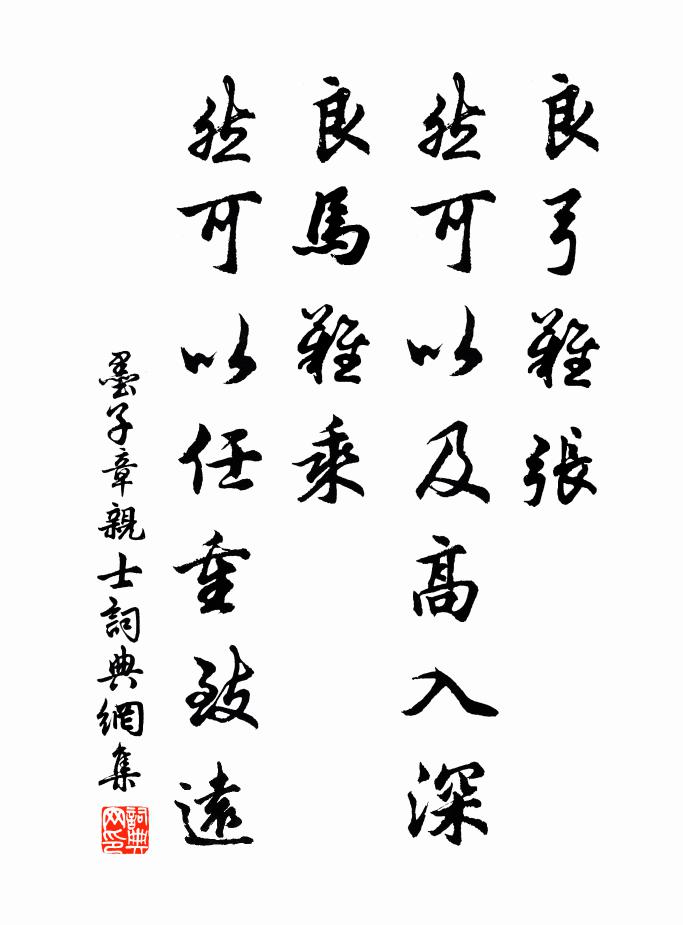 良弓難張
然可以及高入深
良馬難乘
然可以任重致遠
墨子章親士詞典網集
詞典网印